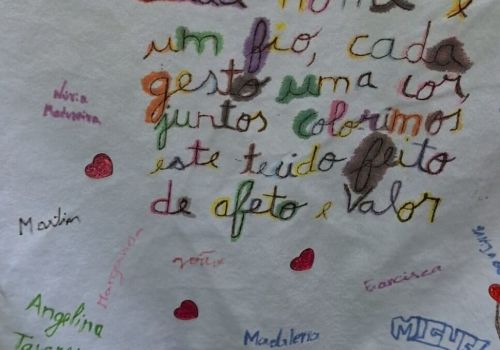 cada nome é
um fio, cada
gesto uma cor,
juntos colorimos
este tecido feito
de afeto e valor
Núria
Madureira
Martim
Margarida
Angelina
Tavares
Madalena
Francisca
MIGUEL